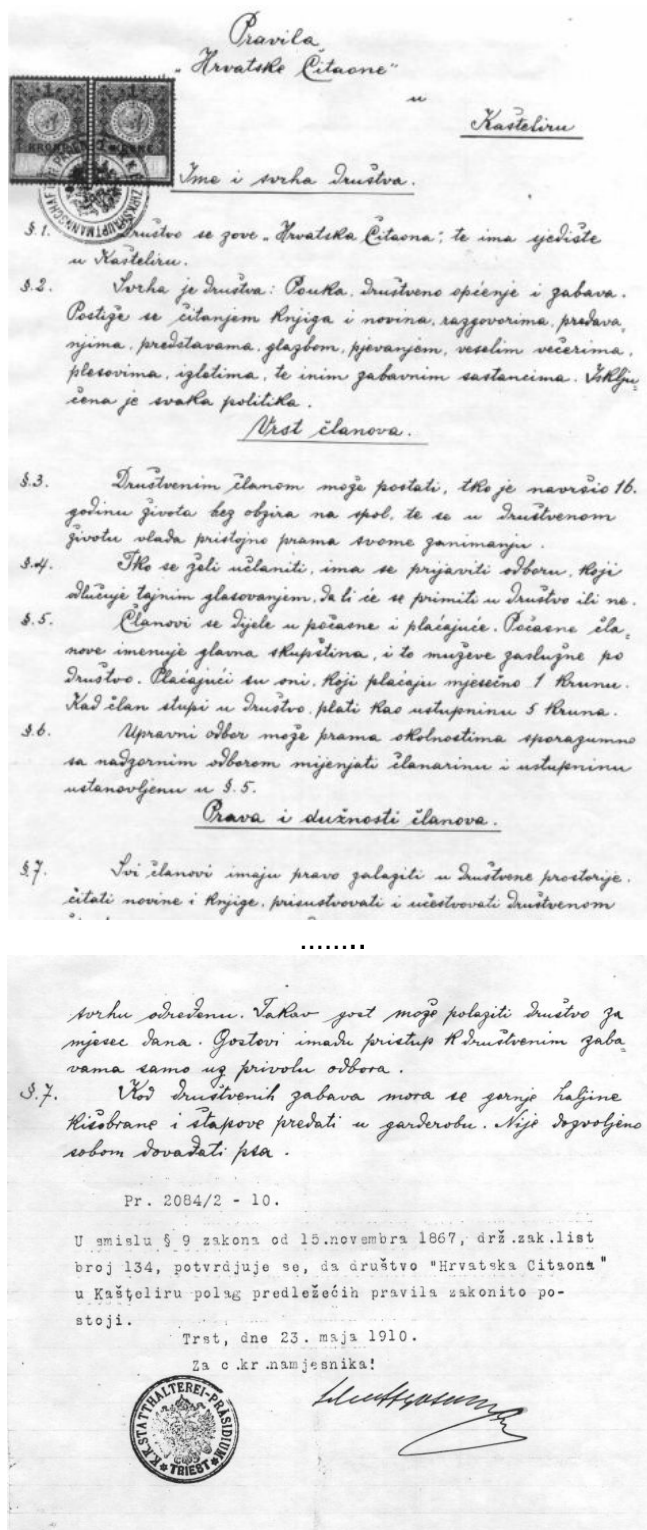 Pravila
„Hrvatske Čitaone“
u
Kašteliru
1 1
KRONE KRONE
Ime i svrha društva.
§.1. Društvo se zove „Hrvatska Čitaona“, te ima sjedište
u Kašteliru.
§.2. Svrha je društva: Pouka, društveno općenje i zabava.
Postiže se čitanjem knjiga i novina, razgovorima, predava,
njima, predstavama, glazbom, pjevanjem, veselim večerima,
plesovima, izletima, te inim zabavnim sastancima. Isklju,
čena je svaka politika.
Vrst članova.
§.3. Društvenim članom može postati, tko je navršio 16.
godinu života bez obzira na spol, te se u društvenom
životu vlada pristojno prama svome zanimanju.
§.4. Tko se želi učlaniti, ima se prijaviti odboru, koji
odlučuje tajnim glasovanjem, da li će se primiti u društvo ili ne.
§.5. Članovi se dijele u počasne i plaćajuće. Počasne čla,
nove imenuje glavna skupština, i to muževe zaslužne po
društvo. Plaćajući su oni, koji plaćaju mjesečno 1 krunu.
Kad član stupi u društvo, plati kao ustupninu 5 kruna.
§.6. Upravni odbor može prama okolnostima sporazumno
sa nadzornim odborom mijenjati članarinu i ustupninu
ustanovljenu u §.5.
Prava i dužnosti članova.
§.7. Svi članovi imaju pravo zalaziti u društvene prostorije,
čitati novine i knjige, prisustvovati i učestvovati društvenom
........
svrhu određenu. Takav gost može polaziti društvo za
mjesec dana. Gostovi imadu pristup k društvenim zaba,
vama samo uz privolu odbora.
§.7. Kod društvenih zabava mora se gornje haljine
kišobrane i štapove predati u garderobu. Nije dozvoljeno
sobom dovađati psa.
Pr. 2084/2 - 10.
U smislu § 9 zakona od 15.novembra 1867, drž.zak.list
broj 134, potvrdjuje se, da društvo "Hrvatska Citaona"
u Kašteliru polag predležećih pravila zakonito po-
stoji.
Trst, dne 23. maja 1910.
Za c.kr.namjesnika!
K.K.STATTHALTEREI-PRÄSIDIUM
TRIEST